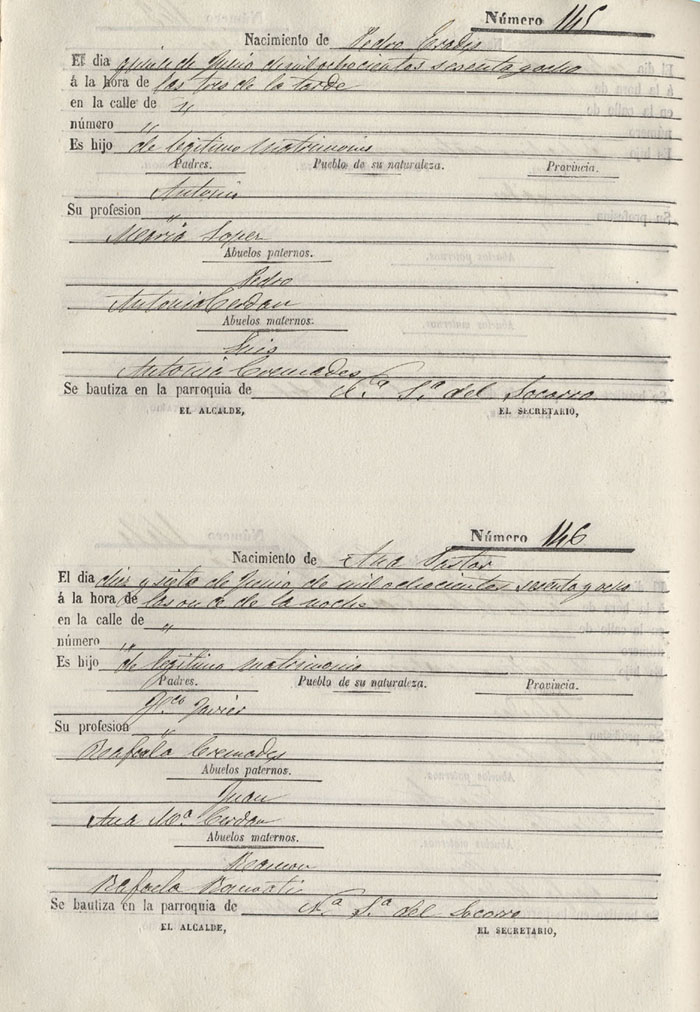 Número 145
Nacimiento de Pedro
El dia quince de Junio de mil ochocientos sesenta y ocho
á la hora de las tres de la tarde
en la calle de "
número "
Es hijo de legitimo matrimonio
Padres. Pueblo de su naturaleza. Provincia.
Antonio
Su profesion "
Maria Lopez
Abuelos paternos.
Pedro
Antonia Cerdan
Abuelos maternos.
Luis
Antonia Cremades
Se bautiza en la parroquia de N.ª S.ª del Socorro
EL ALCALDE, EL SECRETARIO,
Número 146
Nacimiento de Ana Pastor
El dia diez y siete de Junio de mil ochocientos sesenta y ocho
á la hora de las once de la noche
en la calle de "
número "
Es hijo de legitimo matrimonio
Padres. Pueblo de su naturaleza. Provincia.
Fr.co Javier
Su profesion "
Rafaela Cremades
Abuelos paternos.
Juan
Ana M.ª Cerdan
Abuelos maternos.
Ramon
Rafaela
Se bautiza en la parroquia de N.ª S.ª del Socorro
EL ALCALDE, EL SECRETARIO,